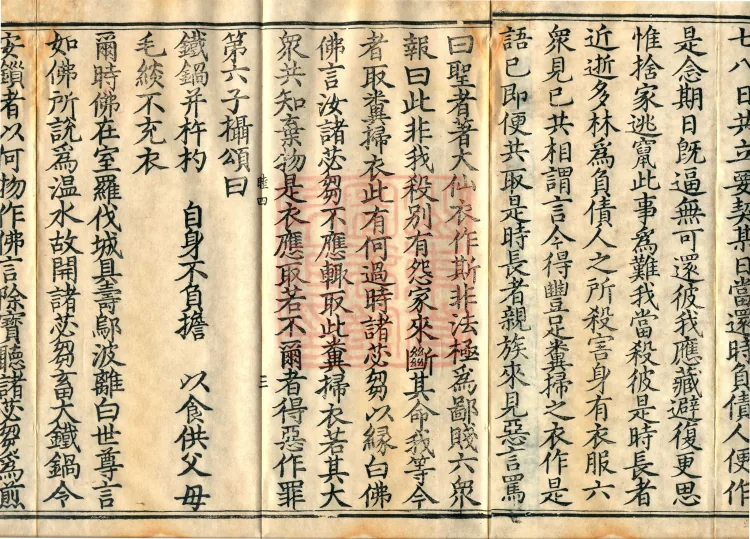 七八日共立要契期日當還時負債人便作
是念期日既逼無可還彼我應藏避復更思
惟捨家逃竄此事爲難我當殺彼是時長者
近逝多林爲負債人之所殺害身有衣服六
衆見已共相謂言今得豐足糞掃之衣作是
語已即便共取是時長者親族來見惡言罵
曰聖者著大仙衣作斯非法極爲鄙賤六衆
報曰此非我殺別有怨家來斷其命我等今
者取糞掃衣此有何過時諸苾芻以緣白佛
佛言汝諸苾芻不應輒取此糞掃衣若其大
衆共知棄物是衣應取若不爾者得惡作罪
睦四 三
第六子攝頌曰
鐵鍋并杵杓 自身不負擔 以食供父母
毛緂不充衣
爾時佛在室羅伐城具壽鄔波離白世尊言
如佛所說爲温水故開諸苾芻畜大鐵鍋今
安鎖者以何物作佛言除寶聽諸苾芻爲煎